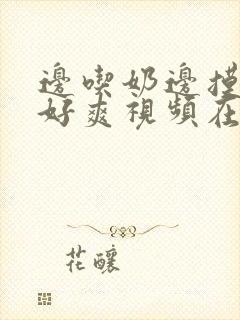 邊喫奶邊摸
好爽視頻在
花釀